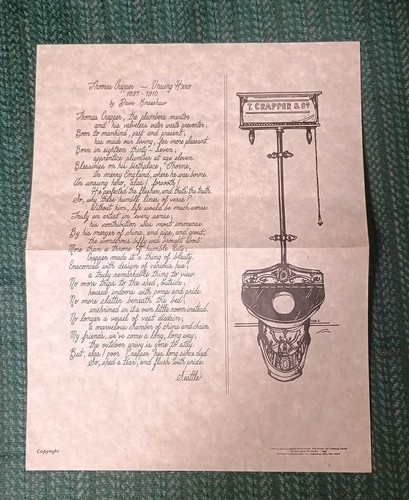 Thomas Crapper — Unsung Hero
1837 - 1910
by Dave Kneeshaw
Thomas Crapper, the plumbers mentor
and his valveless water waste preventer,
Boon to mankind, past and present,
has made our living far more pleasant.
Born in eighteen thirty-seven,
apprentice plumber at age eleven.
Blessings on his birthplace, Thorne,
In merry England, where he was borne.
An unsung hero, 'alas! forsooth!
He perfected the flusher, and that's the truth.
So, why these humble lines of verse?
Without him, life would be much worse.
Truly an artist in every sense,
his contribution was most immense.
By his merger of china, and pipe, and grout,
the wonderous biffy was brought about.
More than a throne of humble duty,
Crapper made it a thing of beauty.
Ensconced with design of various hue,
a truly remarkable thing to view.
No more trips to the shed, outside,
housed indoors with care and pride.
No more clatter beneath the bed,
enshrined in its own little room instead.
No longer a vessel of vast disdain,
a marvelous chamber of china and chain.
My friends, we've come a long, long way,
the outdoor privy is gone to stay.
But, alas! poor Crapper has long since died
So, shed a tear, and flush with pride.
Seattle
T. CRAPPER & Co.
Copyright